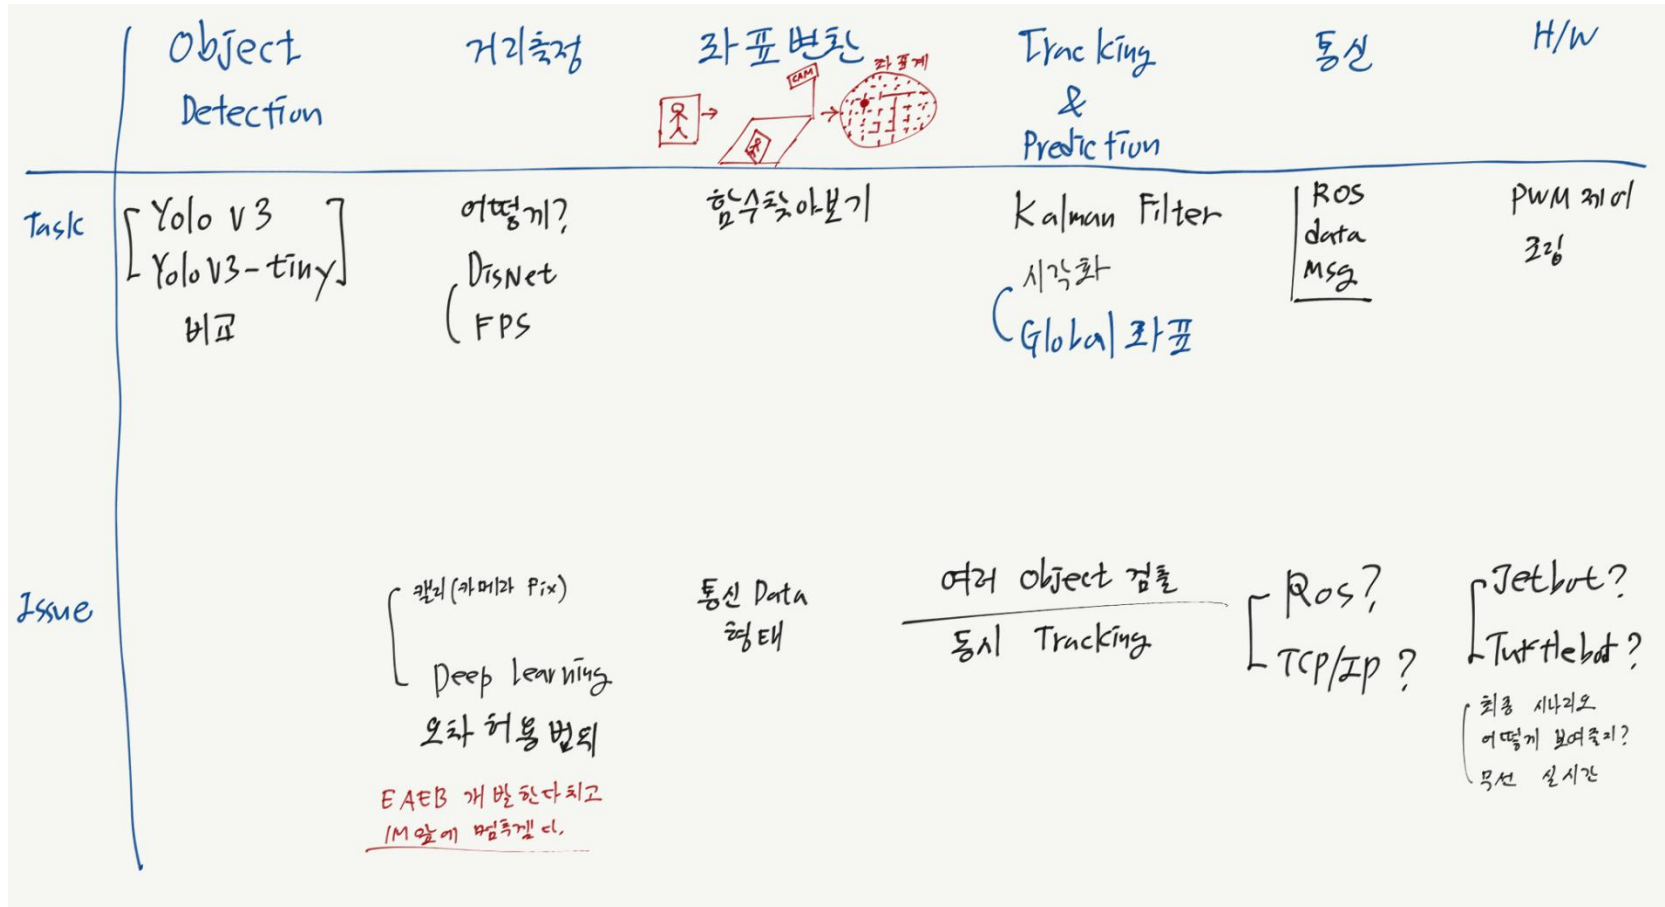 Object
Detection
거리측정
좌표변환
CAM
좌표계
Tracking
&
Prediction
통신
H/W
Task
Yolo v3
YoloV3-tiny
비교
어떻게?
DisNet
FPS
함수찾아보기
Kalman Filter
시각화
Global 좌표
ROS
data
Msg
PWM 제어
조립
Issue
캘리(카메라 Pix)
Deep Learning
오차 허용 범위
EAEB 개발한다치고
1M앞에 멈추겠다.
통신 Data
형태
여러 object 검출
동시 Tracking
Ros?
TCP/IP ?
Jetbot?
Turtlebot?
최종 시나리오
어떻게 보여줄지?
무선 실시간